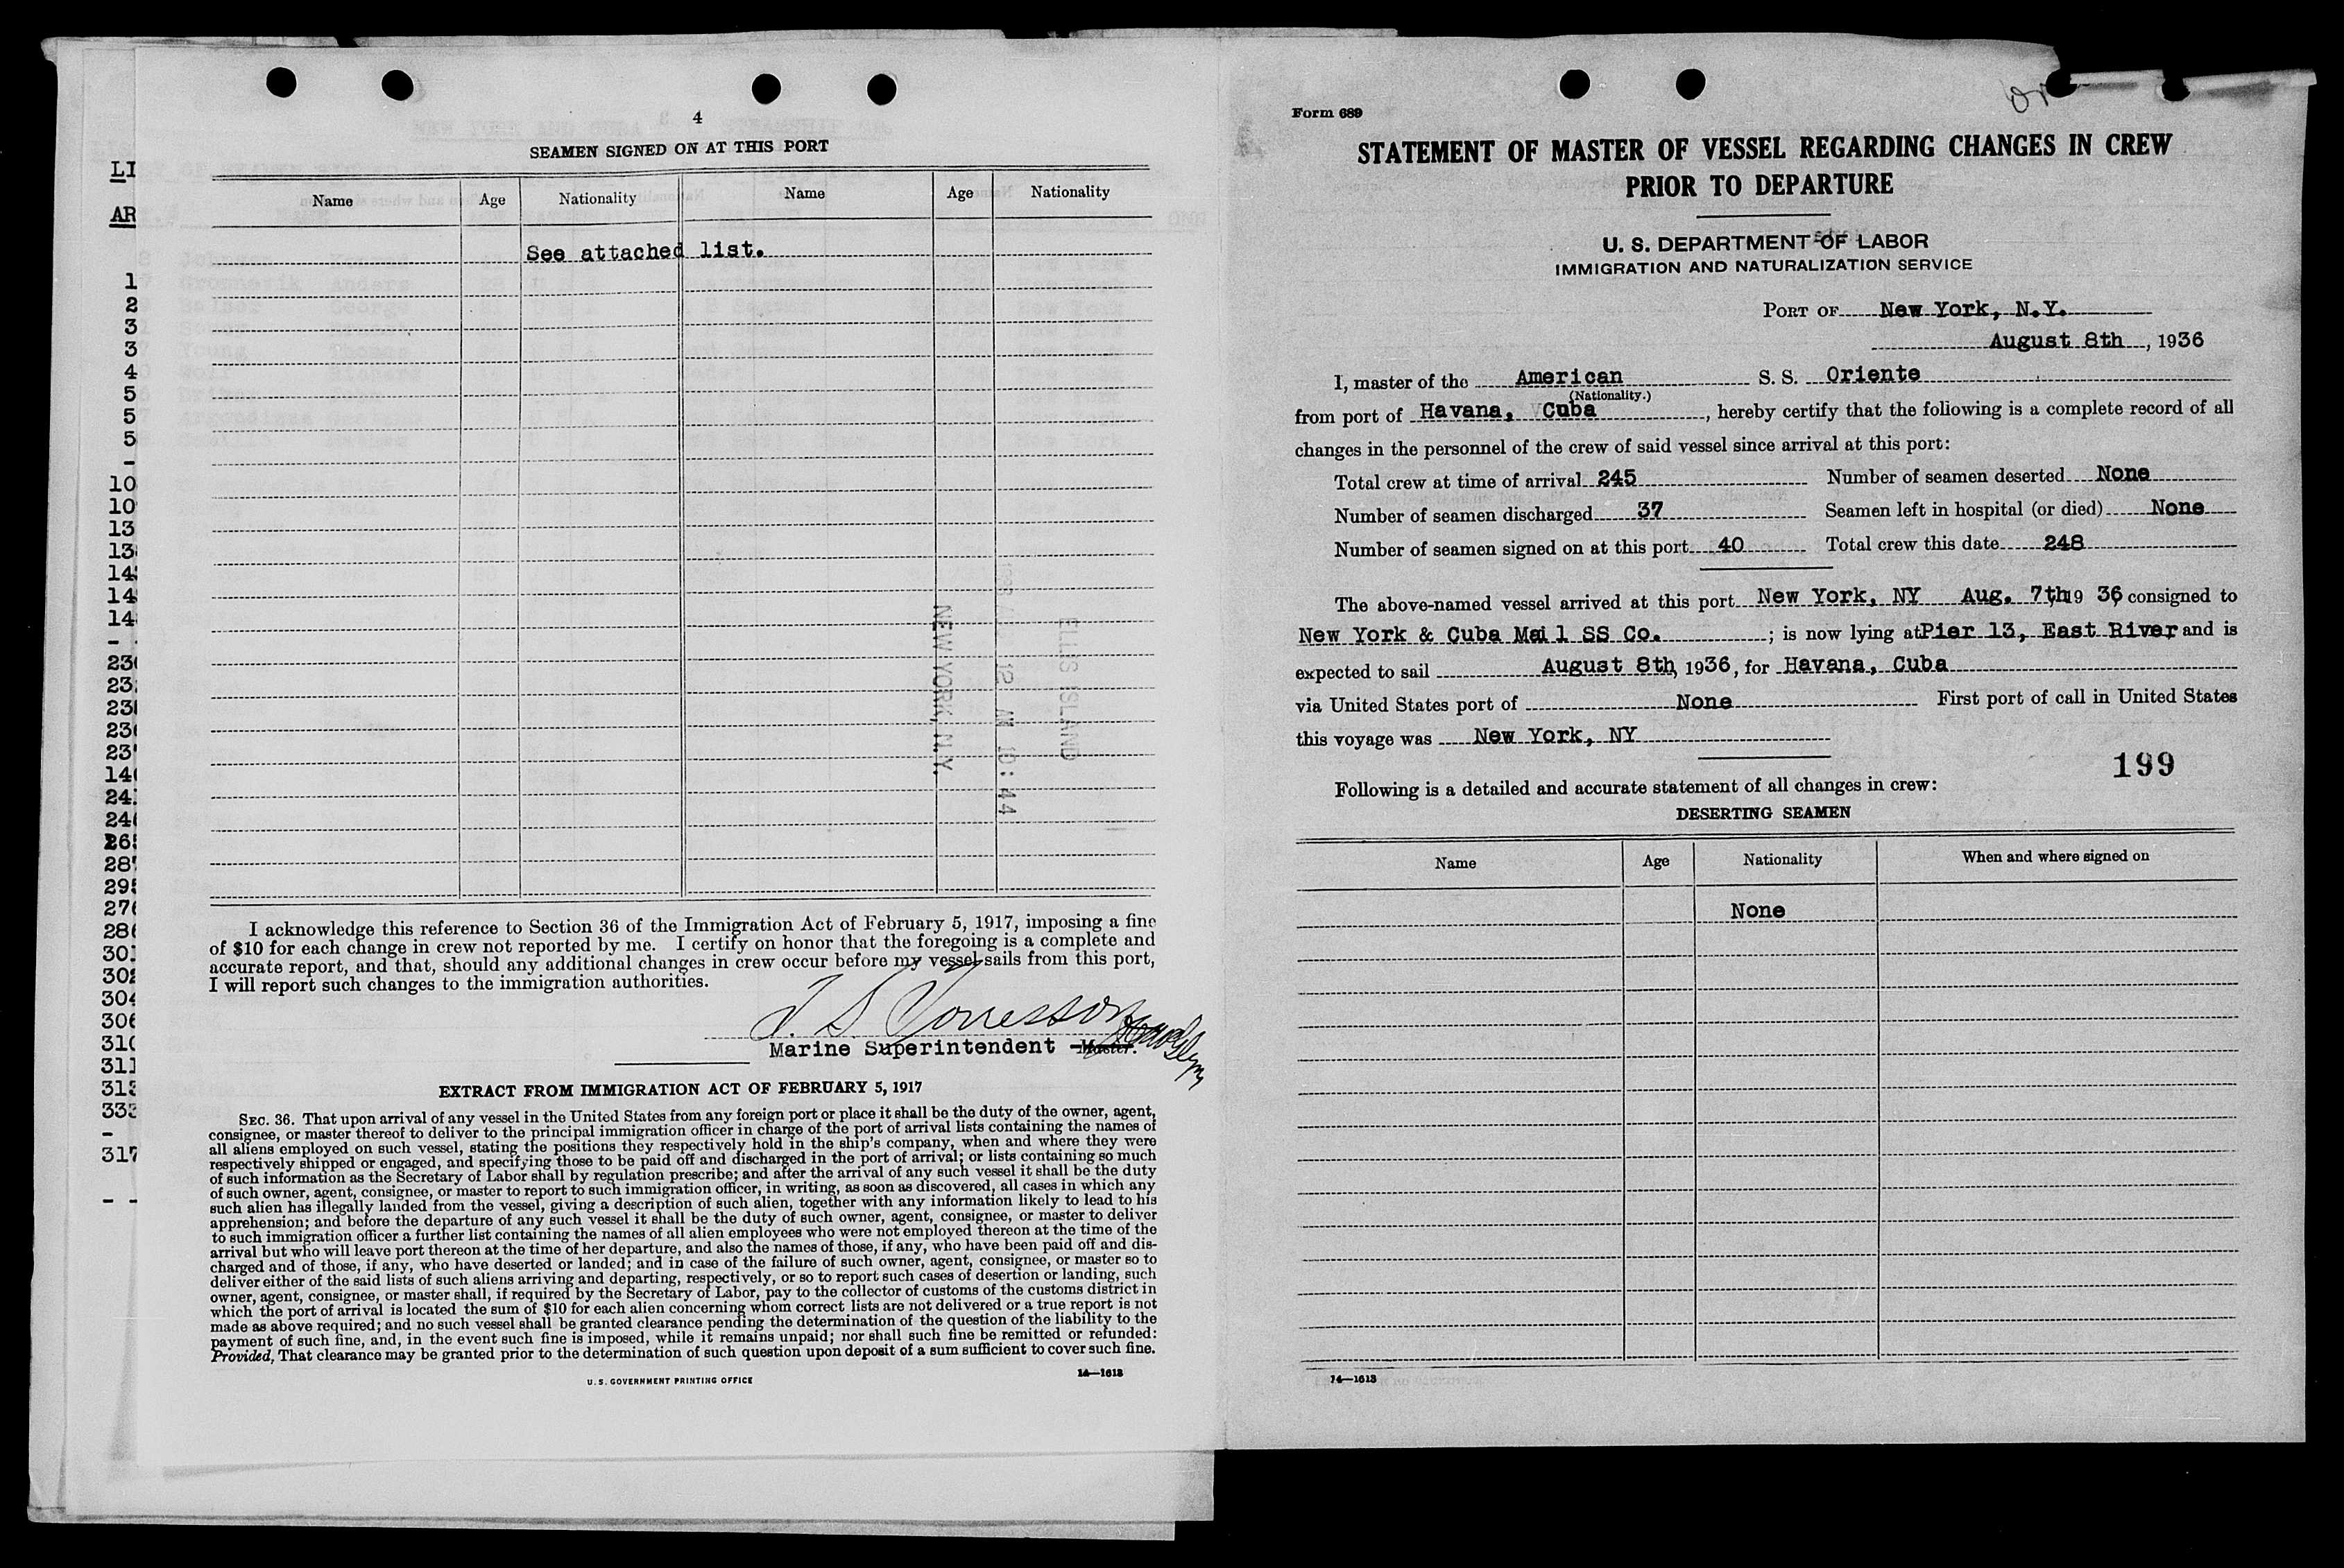 4
SEAMEN SIGNED ON AT THIS PORT
Name Age Nationality Name Age Nationality
See attached list.
ELLIS ISLAND
12 AM 10:44
NEW YORK, N.Y.
I acknowledge this reference to Section 36 of the Immigration Act of February 5, 1917, imposing a fine
of $10 for each change in crew not reported by me. I certify on honor that the foregoing is a complete and
accurate report, and that, should any additional changes in crew occur before my vessel sails from this port,
I will report such changes to the immigration authorities.
Marine Superintendent Master.
EXTRACT FROM IMMIGRATION ACT OF FEBRUARY 5, 1917
SEC. 36. That upon arrival of any vessel in the United States from any foreign port or place it shall be the duty of the owner, agent,
consignee, or master thereof to deliver to the principal immigration officer in charge of the port of arrival lists containing the names of
all aliens employed on such vessel, stating the positions they respectively hold in the ship's company, when and where they were
respectively shipped or engaged, and specifying those to be paid off and discharged in the port of arrival; or lists containing so much
of such information as the Secretary of Labor shall by regulation prescribe; and after the arrival of any such vessel it shall be the duty
of such owner, agent, consignee, or master to report to such immigration officer, in writing, as soon as discovered, all cases in which any
such alien has illegally landed from the vessel, giving a description of such alien, together with any information likely to lead to his
apprehension; and before the departure of any such vessel it shall be the duty of such owner, agent, consignee, or master to deliver
to such immigration officer a further list containing the names of all alien employees who were not employed thereon at the time of the
arrival but who will leave port thereon at the time of her departure, and also the names of those, if any, who have been paid off and dis-
charged and of those, if any, who have deserted or landed; and in case of the failure of such owner, agent, consignee, or master so to
deliver either of the said lists of such aliens arriving and departing, respectively, or so to report such cases of desertion or landing, such
owner, agent, consignee, or master shall, if required by the Secretary of Labor, pay to the collector of customs of the customs district in
which the port of arrival is located the sum of $10 for each alien concerning whom correct lists are not delivered or a true report is not
made as above required; and no such vessel shall be granted clearance pending the determination of the question of the liability to the
payment of such fine, and, in the event such fine is imposed, while it remains unpaid; nor shall such fine be remitted or refunded:
Provided, That clearance may be granted prior to the determination of such question upon deposit of a sum sufficient to cover such fine.
U. S. GOVERNMENT PRINTING OFFICE 14—1613
Form 689
STATEMENT OF MASTER OF VESSEL REGARDING CHANGES IN CREW
PRIOR TO DEPARTURE
U. S. DEPARTMENT OF LABOR
IMMIGRATION AND NATURALIZATION SERVICE
PORT OF New York, N.Y.
August 8th, 1936
I, master of the American S. S. Oriente
(Nationality.)
from port of Havana, Cuba, hereby certify that the following is a complete record of all
changes in the personnel of the crew of said vessel since arrival at this port:
Total crew at time of arrival 245 Number of seamen deserted None
Number of seamen discharged 37 Seamen left in hospital (or died) None
Number of seamen signed on at this port 40 Total crew this date 248
The above-named vessel arrived at this port New York, NY Aug. 7th, 19 36, consigned to
New York & Cuba Mail SS Co. ; is now lying at Pier 13, East River and is
expected to sail August 8th, 1936, for Havana, Cuba
via United States port of None First port of call in United States
this voyage was New York, NY
199
Following is a detailed and accurate statement of all changes in crew:
DESERTING SEAMEN
Name Age Nationality When and where signed on
None
14—1613